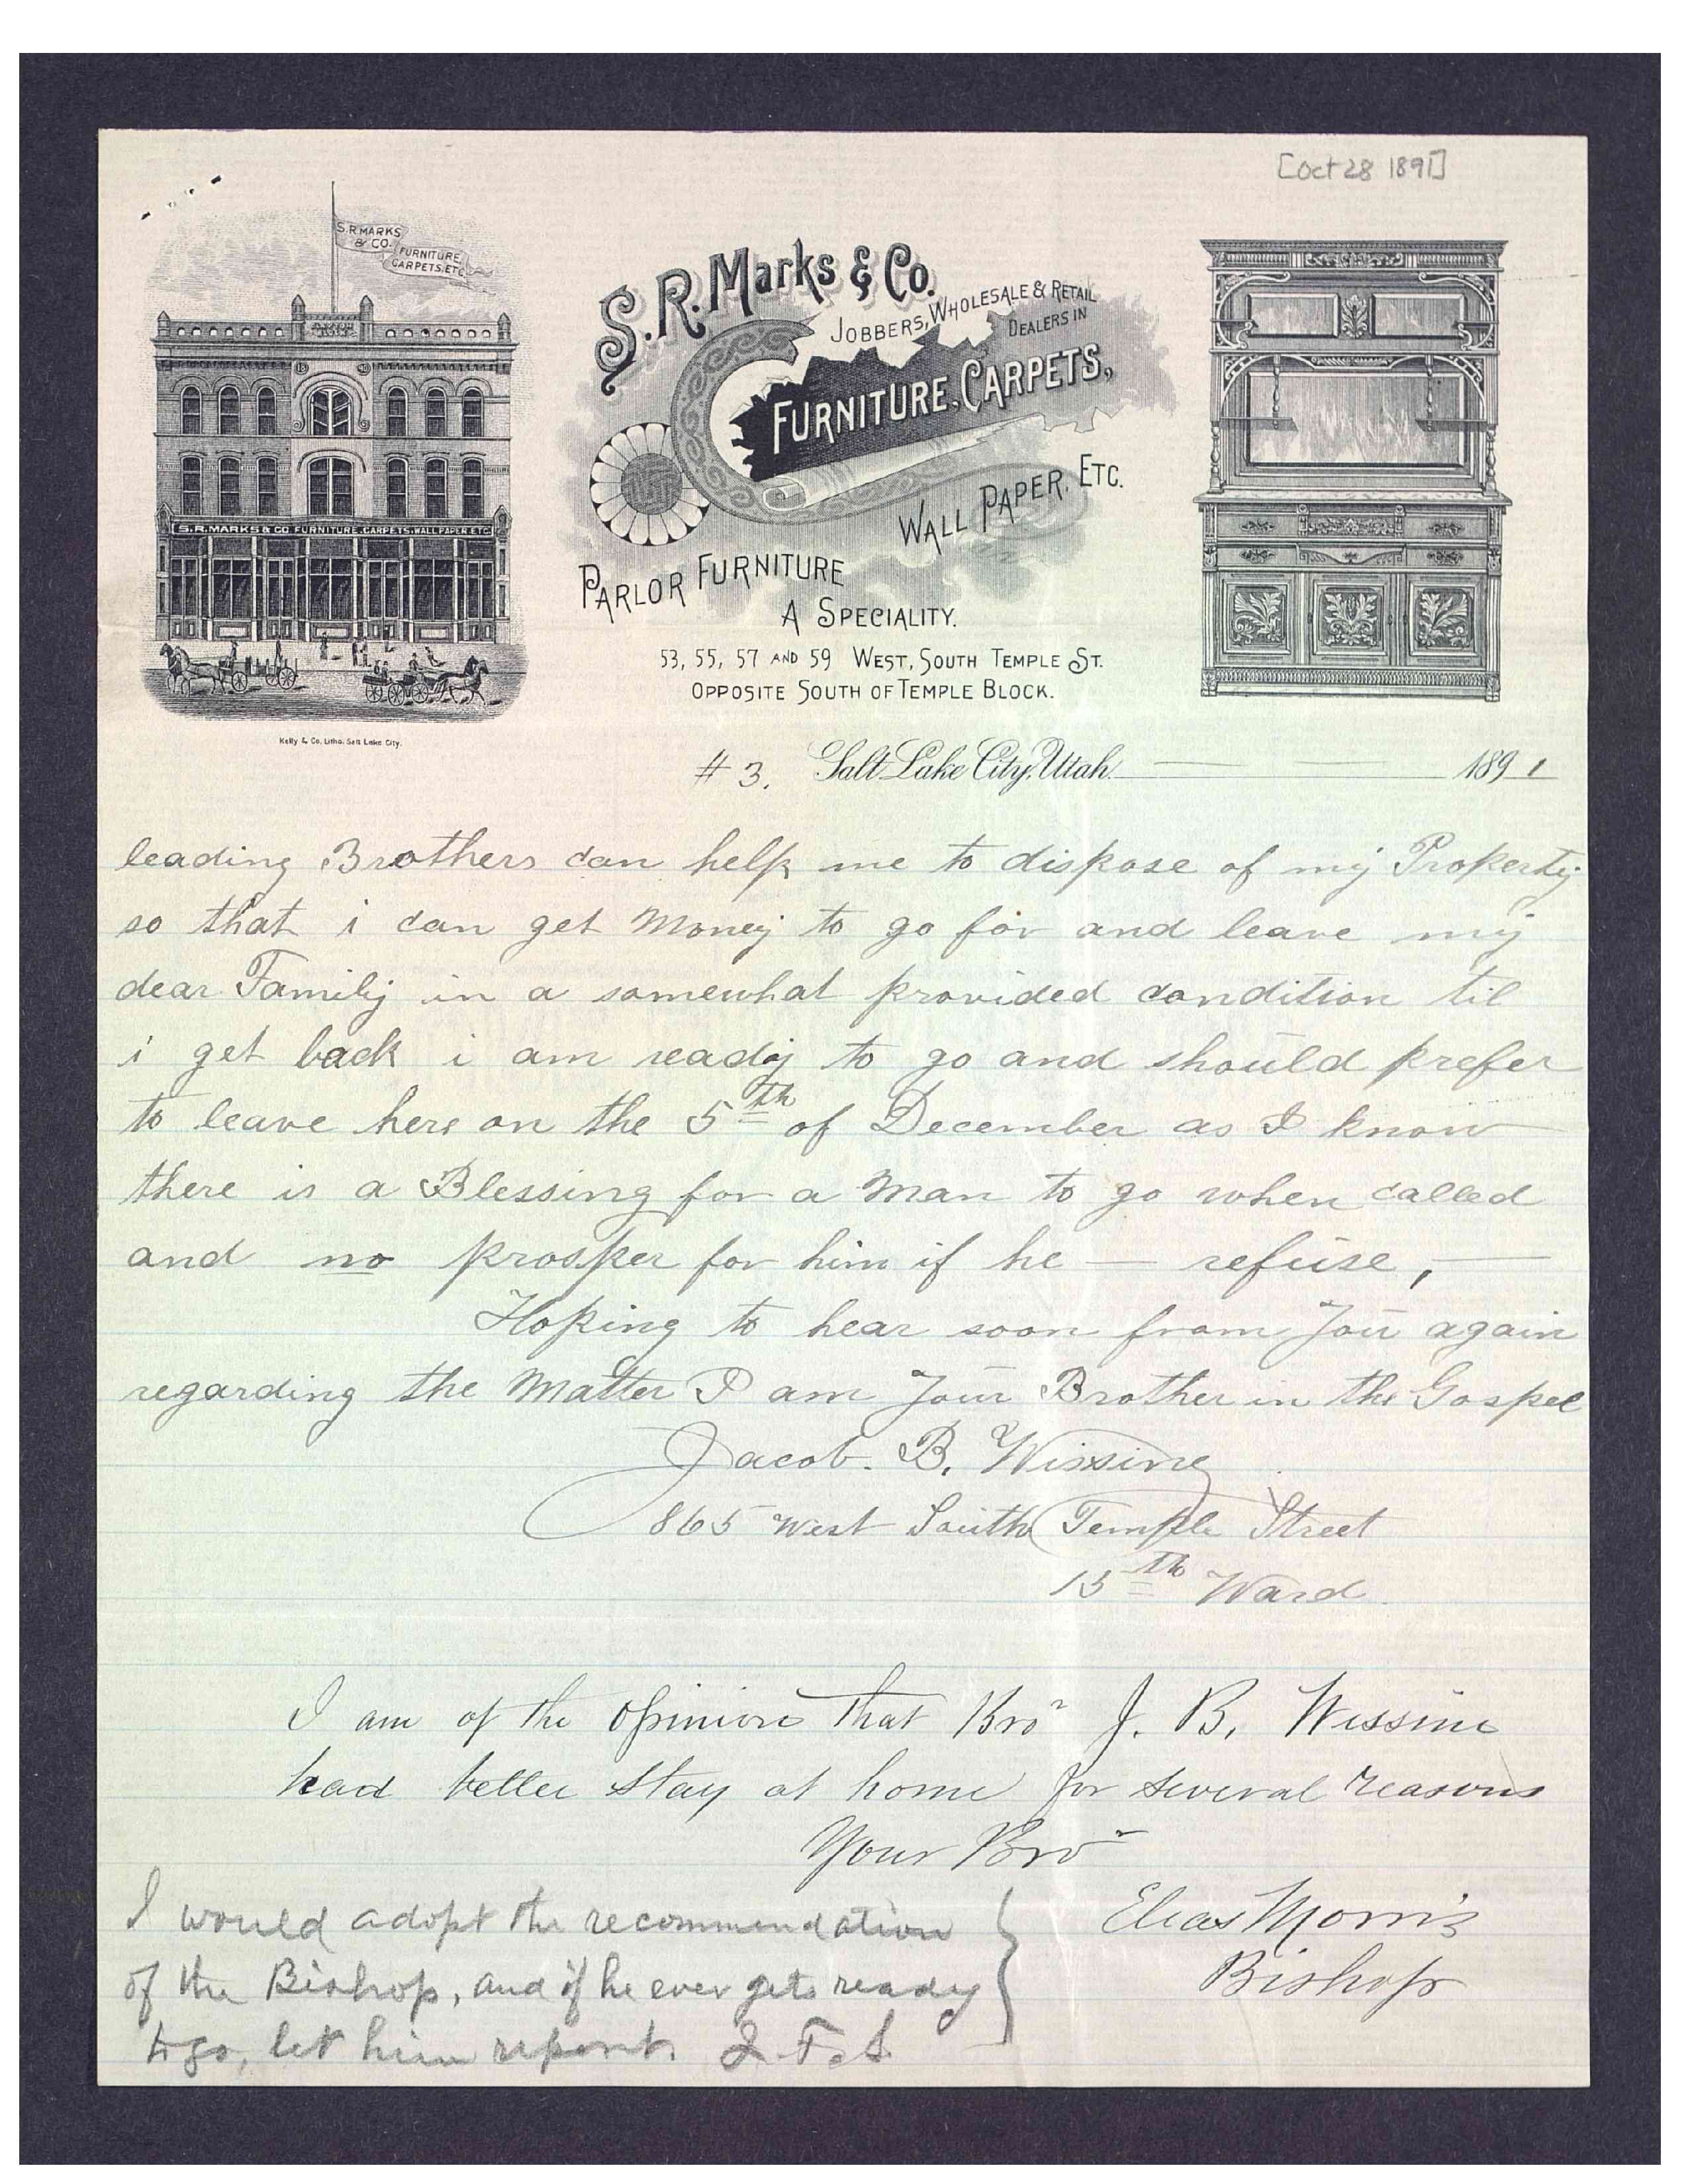 [Oct 28 1891]
S.R. MARKS
& CO.
FURNITURE,
CARPETS, ETC.
S.R. Marks & Co.
JOBBERS, WHOLESALE & RETAIL
DEALERS IN
FURNITURE, CARPETS,
WALL PAPER, ETC.
PARLOR FURNITURE
A SPECIALITY.
53, 55, 57 AND 59 WEST, SOUTH TEMPLE ST.
OPPOSITE SOUTH OF TEMPLE BLOCK.
S.R. MARKS & CO FURNITURE, CARPETS, WALL PAPER, ETC.
Kelly & Co. Litho. Salt Lake City.
# 3. Salt Lake City, Utah 1891
leading Brothers can help me to dispose of my Property
so that i can get Money to go for and leave my
dear Family in a somewhat provided condition til
i get back i am ready to go and should prefer
to leave here on the 5th of December as I know
there is a Blessing for a Man to go when called
and no prosper for him if he — refuse, —
Hoping to hear soon from You again
regarding the Matter I am Your Brother in the Gospel
Jacob. B. Wissing
865 West South Temple Street
15th Ward
I am of the opinion that Bro J. B. Wissine
had better stay at home for several reasons
Your Bro
Elias Morris
Bishop
I would adopt the recommendation
of the Bishop, and if he ever gets ready
to go, let him report. J. F. S.